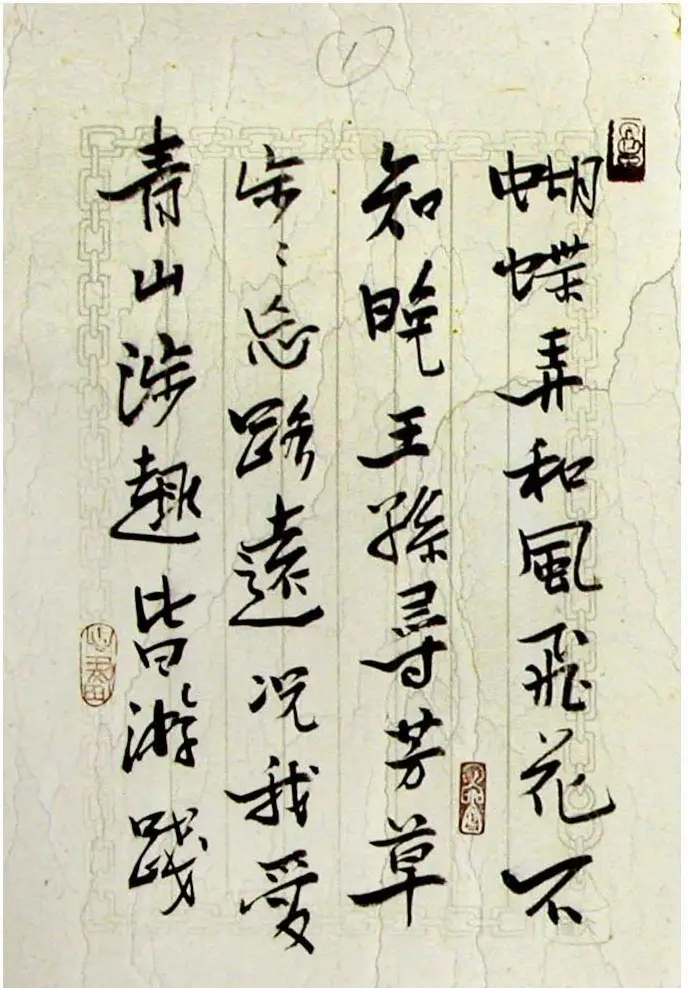 1
蝴蝶弄和風飛花不
知晚王孫尋芳草
步〻忘路遠况我愛
青山涉趣皆游踐